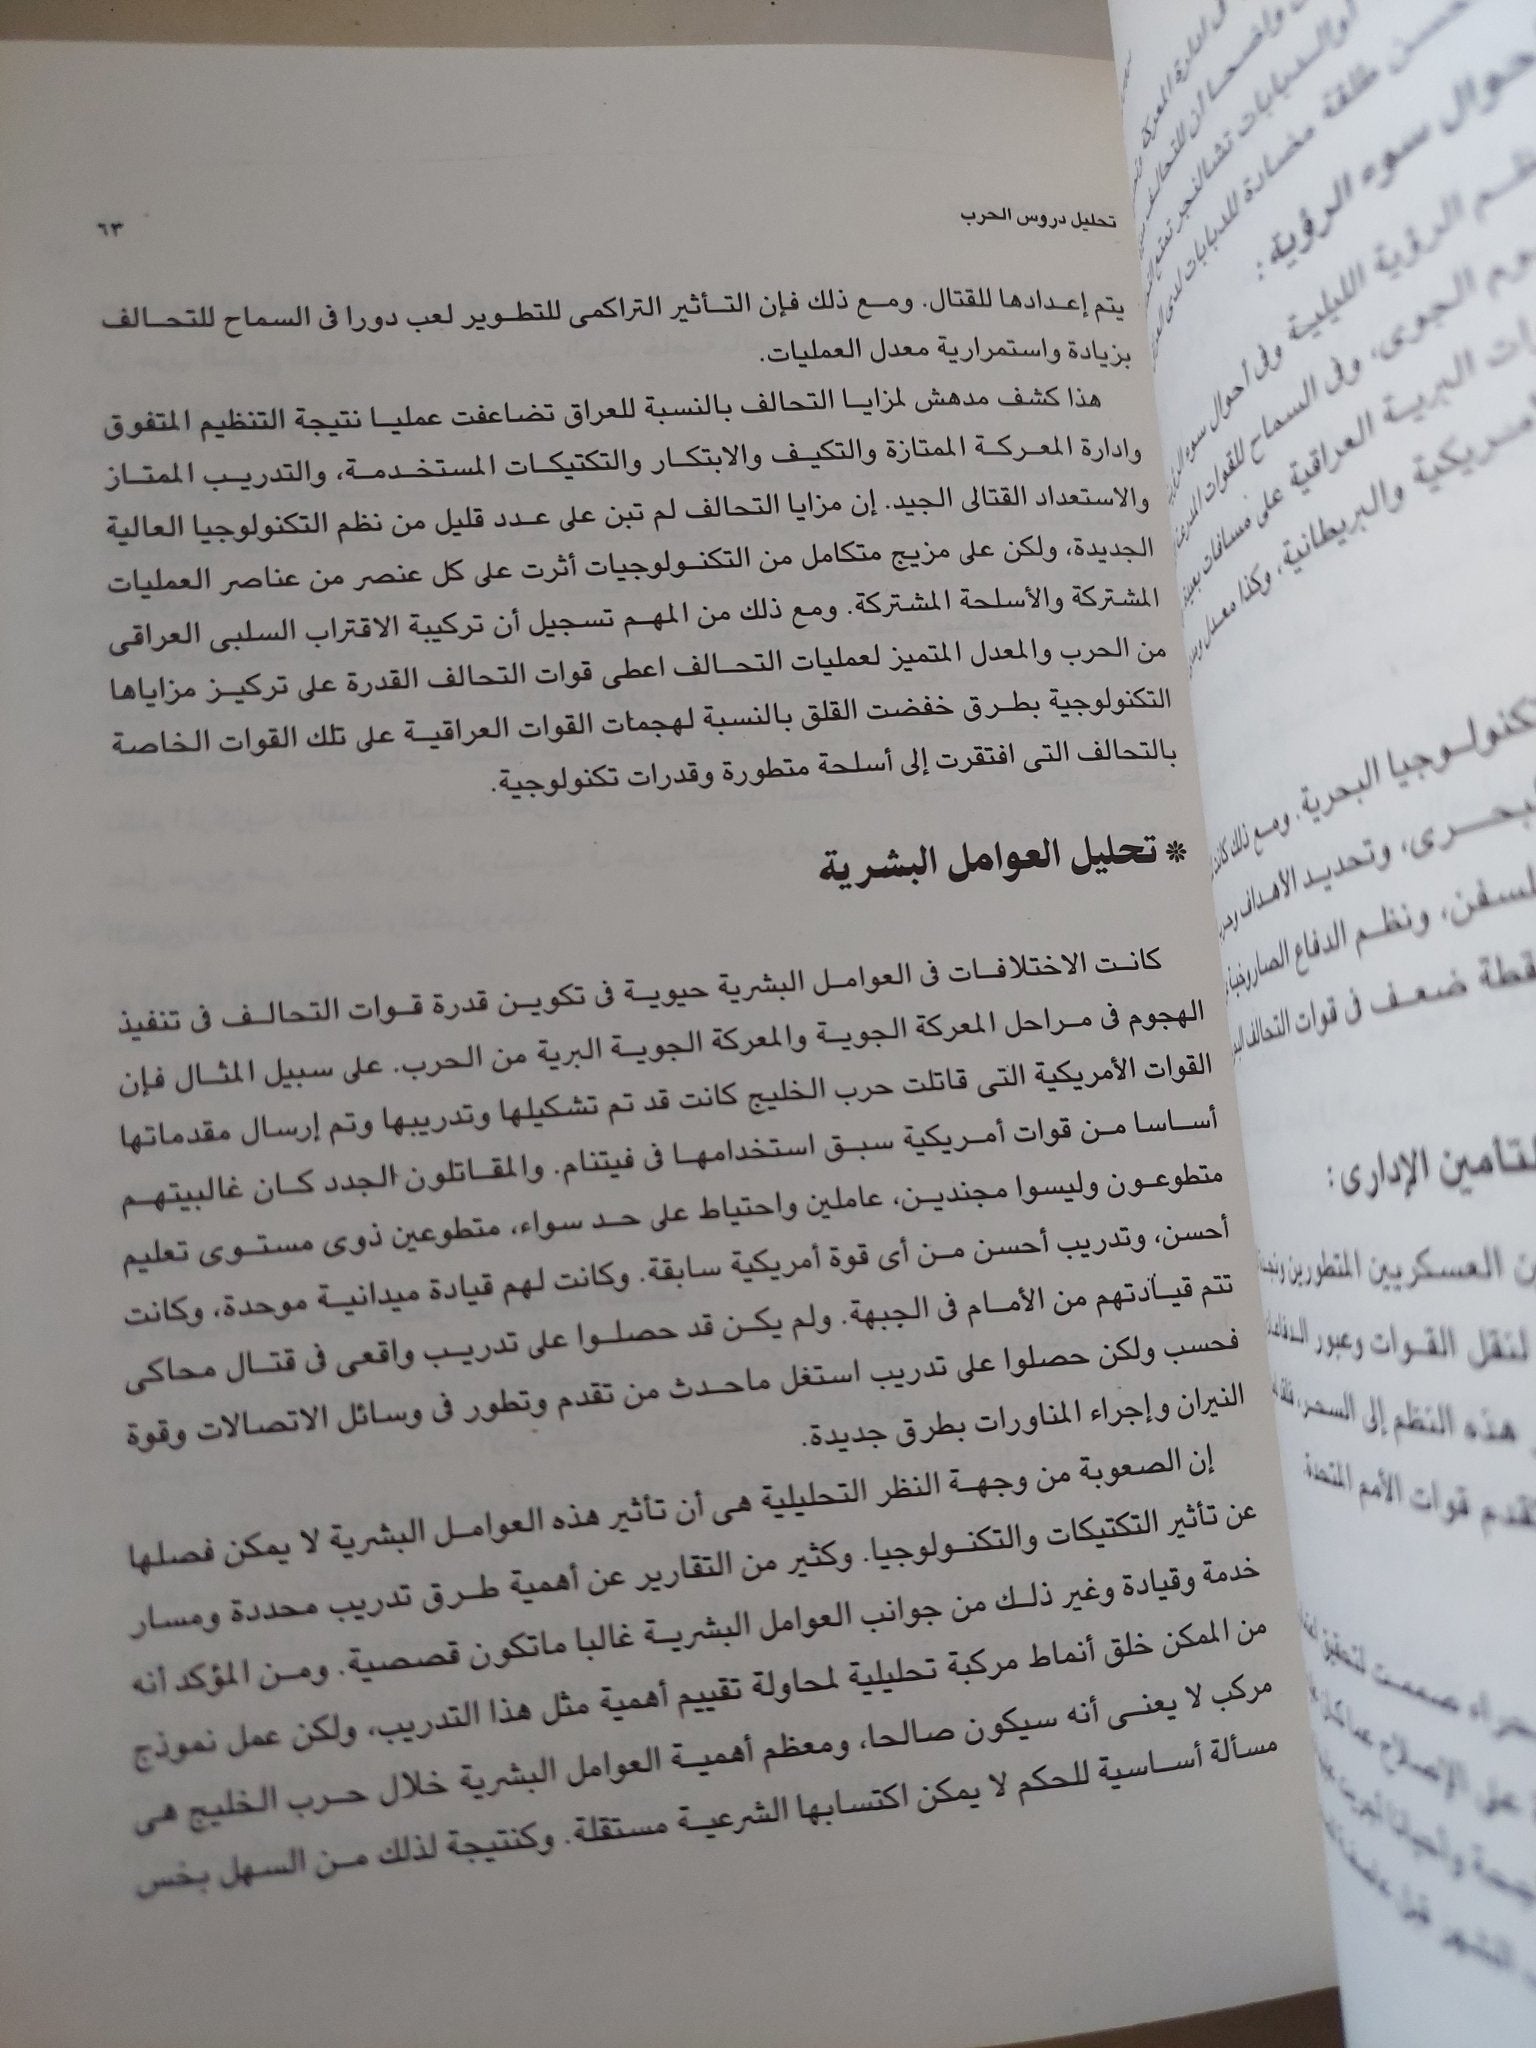 تحليل دروس الحرب
٦٣
يتم إعدادها للقتال. ومع ذلك فإن التأثير التراكمى للتطوير لعب دورا فى السماح للتحالف
بزيادة واستمرارية معدل العمليات.
هذا كشف مدهش لمزايا التحالف بالنسبة للعراق تضاعفت عمليا نتيجة التنظيم المتفوق
وادارة المعركة الممتازة والتكيف والابتكار والتكتيكات المستخدمة، والتدريب الممتاز
والاستعداد القتالى الجيد. إن مزايا التحالف لم تبن على عدد قليل من نظم التكنولوجيا العالية
الجديدة، ولكن على مزيج متكامل من التكنولوجيات أثرت على كل عنصر من عناصر العمليات
المشتركة والأسلحة المشتركة. ومع ذلك من المهم تسجيل أن تركيبة الاقتراب السلبى العراقى
من الحرب والمعدل المتميز لعمليات التحالف اعطى قوات التحالف القدرة على تركيز مزاياها
التكنولوجية بطرق خفضت القلق بالنسبة لهجمات القوات العراقية على تلك القوات الخاصة
بالتحالف التى افتقرت إلى أسلحة متطورة وقدرات تكنولوجية.
* تحليل العوامل البشرية
كانت الاختلافات فى العوامل البشرية حيوية فى تكوين قدرة قوات التحالف فى تنفيذ
الهجوم فى مراحل المعركة الجوية والمعركة الجوية البرية من الحرب. على سبيل المثال فإن
القوات الأمريكية التى قاتلت حرب الخليج كانت قد تم تشكيلها وتدريبها وتم إرسال مقدماتها
أساسا من قوات أمريكية سبق استخدامها فى فيتنام. والمقاتلون الجدد كان غالبيتهم
متطوعون وليسوا مجندين، عاملين واحتياط على حد سواء، متطوعين ذوى مستوى تعليم
أحسن، وتدريب أحسن من أى قوة أمريكية سابقة. وكانت لهم قيادة ميدانية موحدة، وكانت
تتم قيادتهم من الأمام فى الجبهة. ولم يكن قد حصلوا على تدريب واقعى فى قتال محاكى
فحسب ولكن حصلوا على تدريب استغل ماحدث من تقدم وتطور فى وسائل الاتصالات وقوة
النيران وإجراء المناورات بطرق جديدة.
إن الصعوبة من وجهة النظر التحليلية هى أن تأثير هذه العوامل البشرية لا يمكن فصلها
عن تأثير التكتيكات والتكنولوجيا. وكثير من التقارير عن أهمية طرق تدريب محددة ومسار
خدمة وقيادة وغير ذلك من جوانب العوامل البشرية غالبا ماتكون قصصية. ومن المؤكد أنه
من الممكن خلق أنماط مركبة تحليلية لمحاولة تقييم أهمية مثل هذا التدريب، ولكن عمل نموذج
مركب لا يعنى أنه سيكون صالحا، ومعظم أهمية العوامل البشرية خلال حرب الخليج هى
مسألة أساسية للحكم لا يمكن اكتسابها الشرعية مستقلة. وكنتيجة لذلك من السهل بخس
طلقة مضادة للدبابات لدى
حوال سوء الرؤية :
الرؤية الليلية وفى أحوال سوء
الجوى، وفى السماح للقوات
البرية العراقية على مسافات
والبريطانية، وكذا معدل
كنولوجيا البحرية. ومع ذلك
وتحديد الأهداف
ونظم الدفاع الصاروخية
قطة ضعف فى قوات التحالف
لتأمين الإدارى :
ن العسكريين المتطورين
لنقل القوات وعبور
هذه النظم إلى السحر،
قدم قوات الأمم المتحدة.
صممت لتحقيق
على الإصلاح